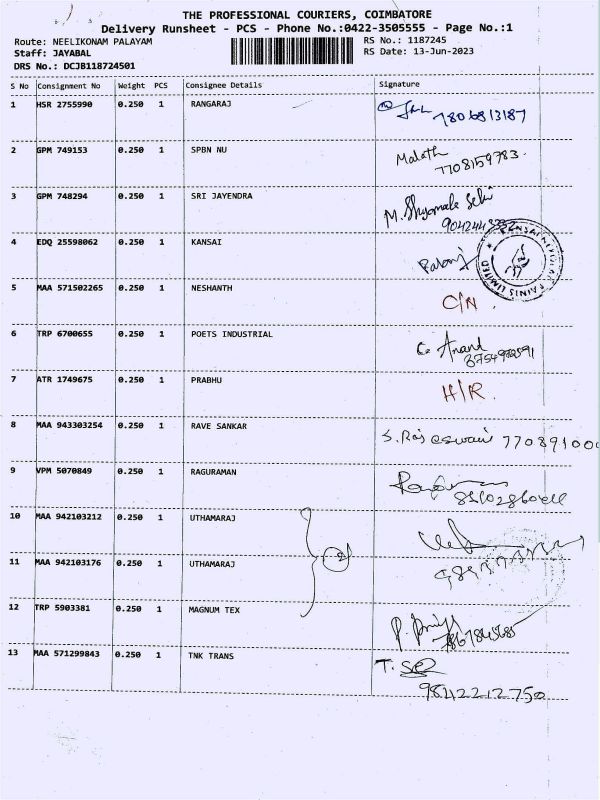 THE PROFESSIONAL COURIERS, COIMBATORE
Delivery Runsheet - PCS - Phone No.:0422-3505555 - Page No.:1
Route: NEELIKONAM PALAYAM RS No.: 1187245
Staff: JAYABAL RS Date: 13-Jun-2023
DRS No.: DCJB118724501
S No Consignment No Weight PCS Consignee Details Signature
1 HSR 2755990 0.250 1 RANGARAJ
7806813187
2 GPM 749153 0.250 1 SPBN NU Malath
7708159783.
3 GPM 748294 0.250 1 SRI JAYENDRA M. Shyamala Selvi
4 EDQ 25598062 0.250 1 KANSAI
5 MAA 571502265 0.250 1 NESHANTH C/N
6 TRP 6700655 0.250 1 POETS INDUSTRIAL C. Anand
7 ATR 1749675 0.250 1 PRABHU H/R.
8 MAA 943303254 0.250 1 RAVE SANKAR S. Rajeswari 770891000
9 VPM 5070849 0.250 1 RAGURAMAN
10 MAA 942103212 0.250 1 UTHAMARAJ
11 MAA 942103176 0.250 1 UTHAMARAJ
12 TRP 5903381 0.250 1 MAGNUM TEX
13 MAA 571299843 0.250 1 TNK TRANS T.
9842212750